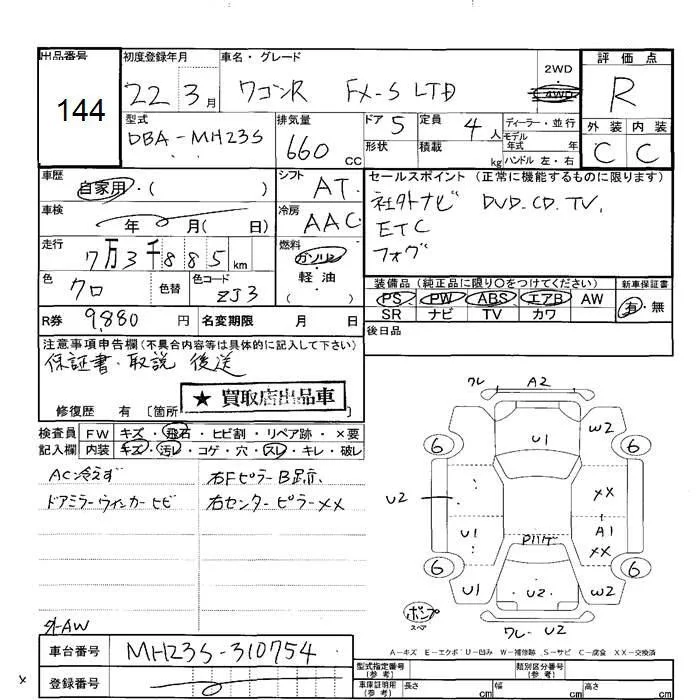 出品番号 初度登録年月 車名・グレード 2WD 評価点
144 22 3月 ワゴンR FX-S LTD 4WD R
外装 内装
C C
型式 排気量 ドア 5 定員 4人 ディーラー・並行
DBA-MH23S 660cc 形状 積載 kg モデル年式 年式
ハンドル 左・右
車歴 シフト セールスポイント (正常に機能するものに限ります)
自家用・( ) AT 社外ナビ DVD.CD.TV.
車検 冷房 ETC
年 月( 日) AAC フォグ
走行 燃料
7万3千885km ガソリン
軽・油
( )
色 色替 色コード 装備品(純正品に限り○をつけてください) 新車保証書
クロ ZJ3 PS PW ABS エアB AW 有・無
SR ナビ TV カワ
R券 9,880円 名変期限 月 日 後日品
注意事項申告欄(不具合内容等は具体的に記入して下さい)
保証書・取説 後送
★ 買取店出品車
修復歴 有 〔箇所
検査員 FW キズ・飛石・ヒビ割・リペア跡・×要
記入欄 内装 キズ・汚レ・コゲ・穴・スレ・キレ・破レ
AC冷えず 右Fピラー B跡、
ドアミラーウィンカー ヒビ 右センターピラーXX
外AW
ワレ A2
U2 W2
U1
6 6
U2 XX
U1 A1
XX
6 6
U1 U2 W2
ポンプ
スペア
ワレ U2
A-キズ E-エクボ U-凹み W-補修跡 S-サビ C-腐食 XX-交換済
車台番号 MH23S-310754 型式指定番号(参考) 類別区分番号(参考)
登録番号 車庫証明用(参考) 長さ cm 幅 cm 高さ cm
x